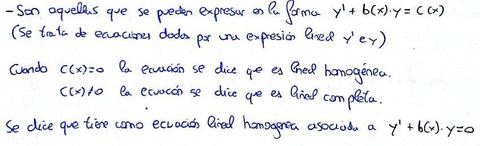 - Son aquellas que se pueden expresar en la forma y' + b(x)·y = c(x)
(Se trata de ecuaciones dadas por una expresión lineal y' e y)
Cuando c(x)=0 la ecuación se dice que es lineal homogénea.
c(x)≠0 la ecuación se dice que es lineal completa.
Se dice que tiene como ecuación lineal homogénea asociada a y' + b(x)·y=0